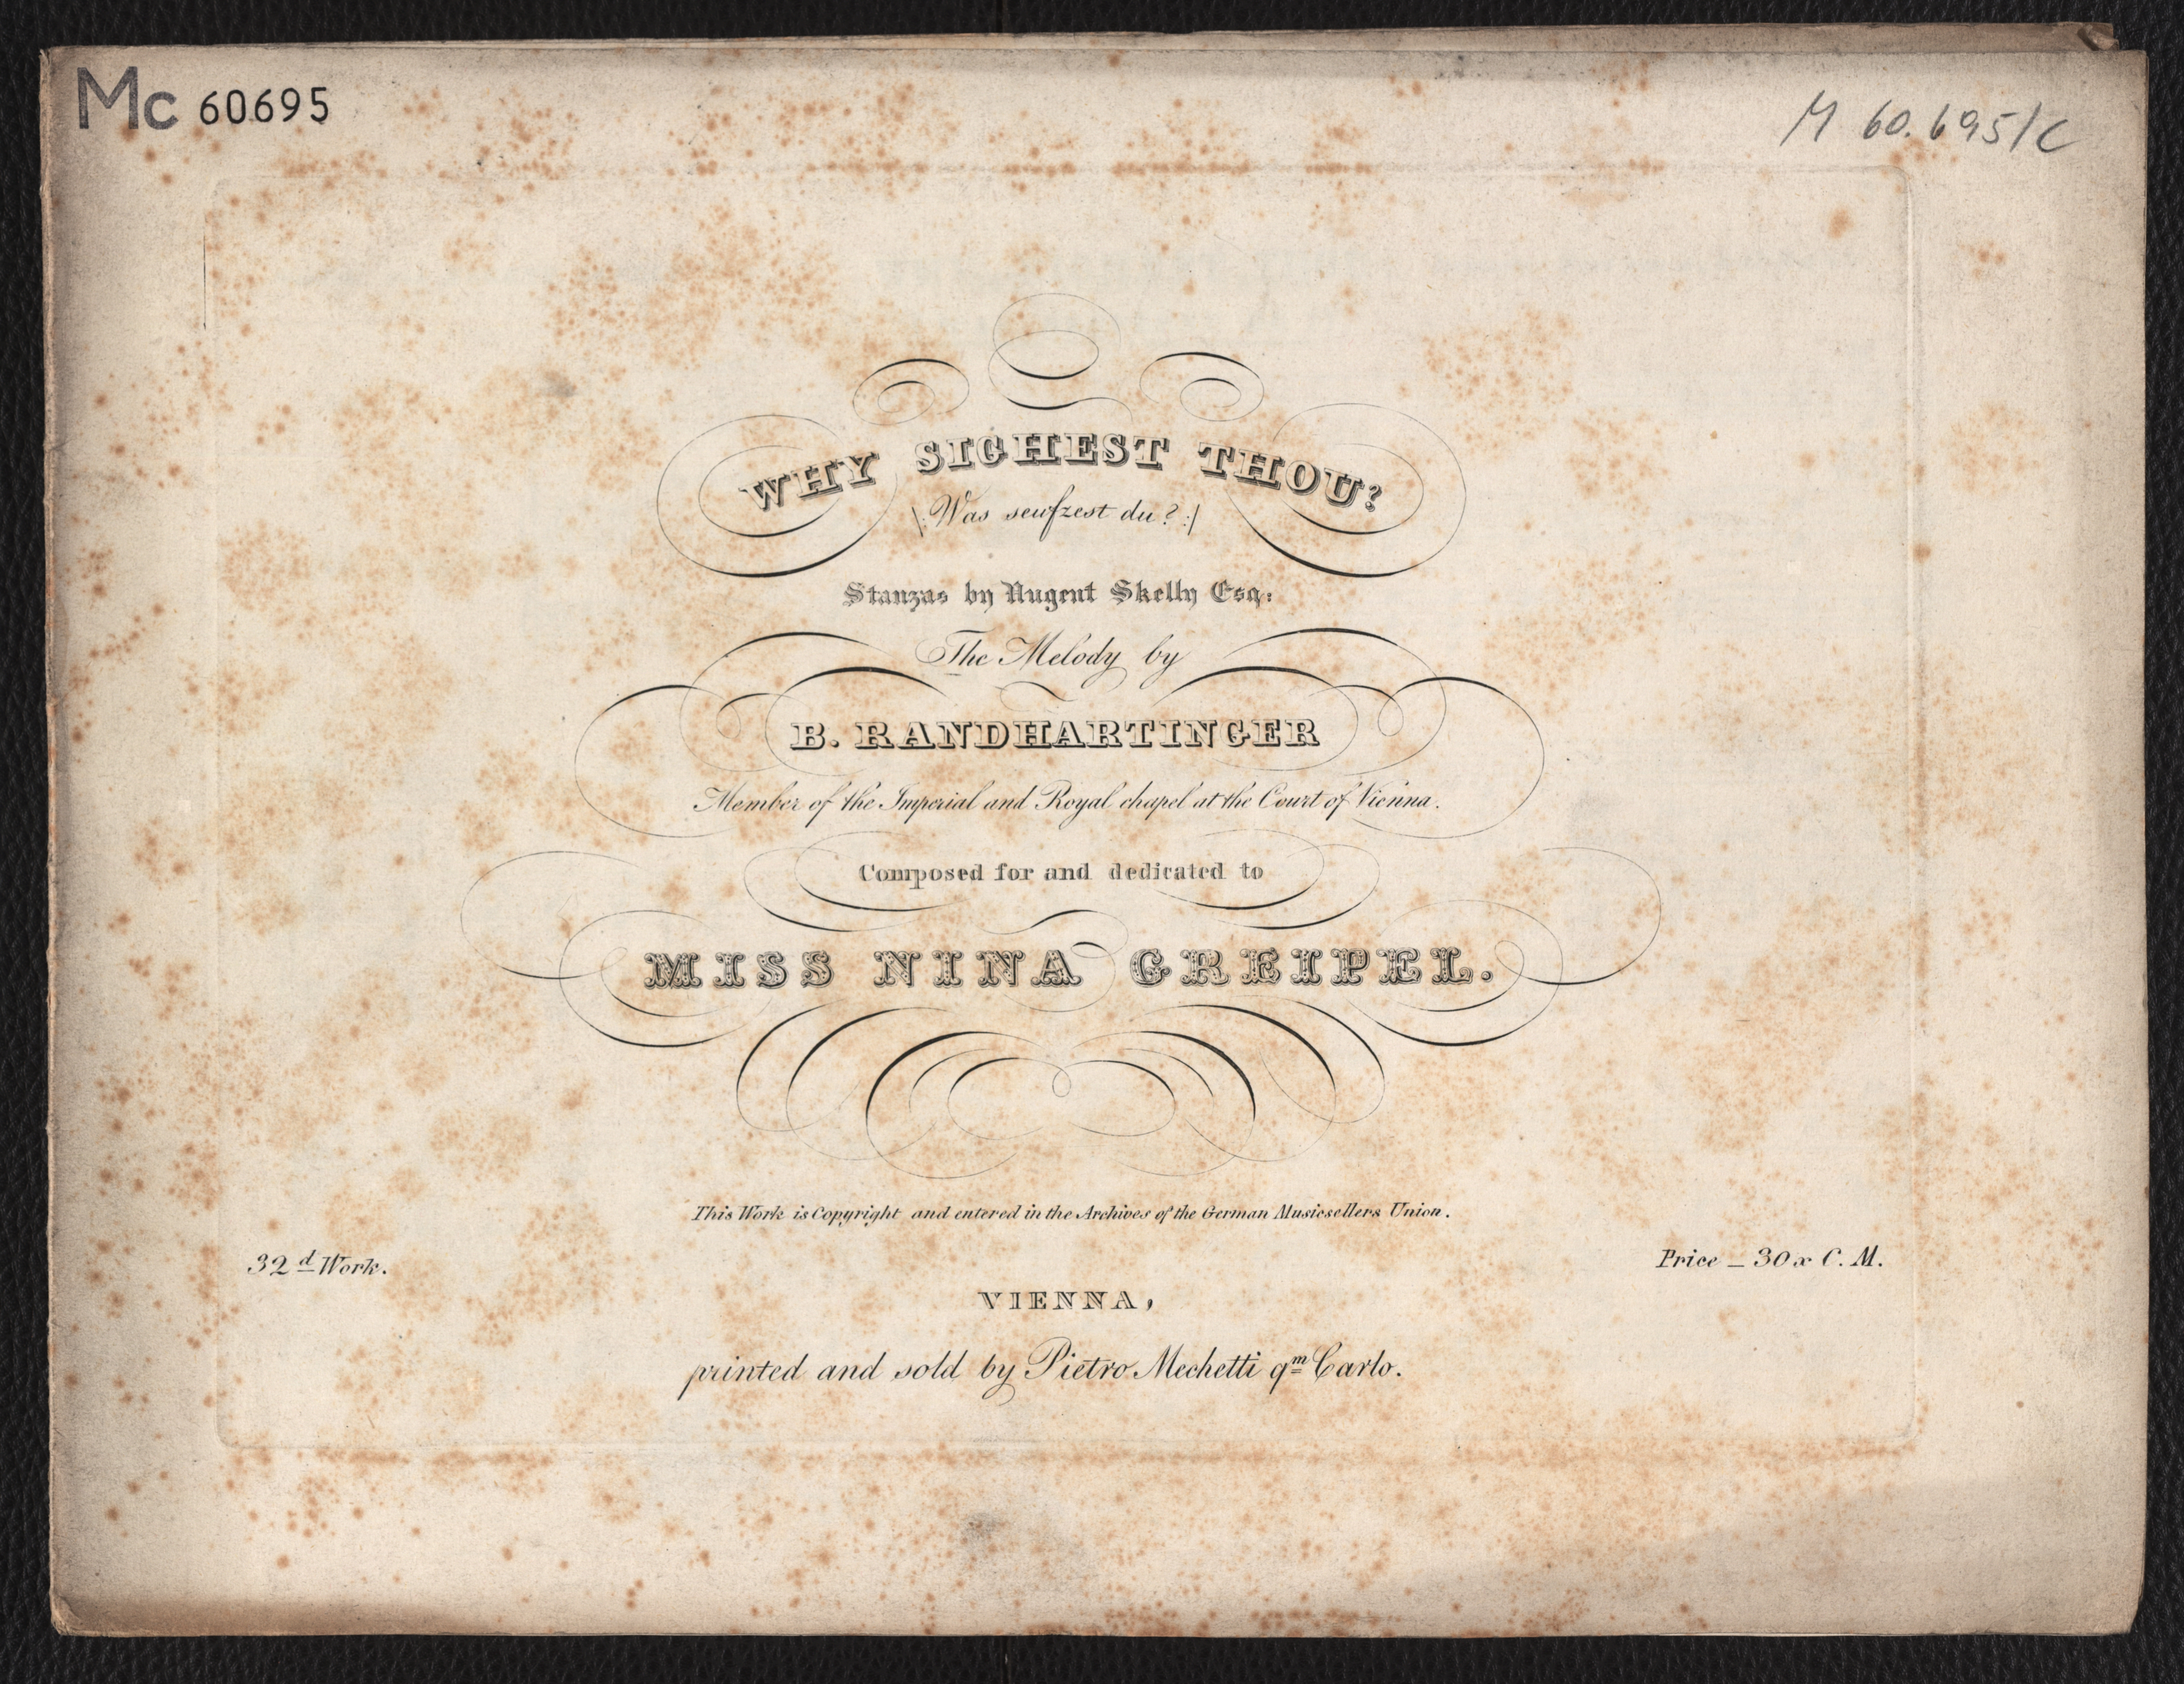 Mc 60695
M 60.695/C
WHY SIGHEST THOU?
|: Was seufzest du? :|
Stanzas by Nugent Skelly Esq:
The Melody by
B. RANDHARTINGER
Member of the Imperial and Royal chapel at the Court of Vienna.
Composed for and dedicated to
MISS NINA GREIPEL.
This Work is Copyright and entered in the Archives of the German Musicsellers Union.
32d Work.
Price _ 30 x C. M.
VIENNA,
printed and sold by Pietro Mechetti qm Carlo.